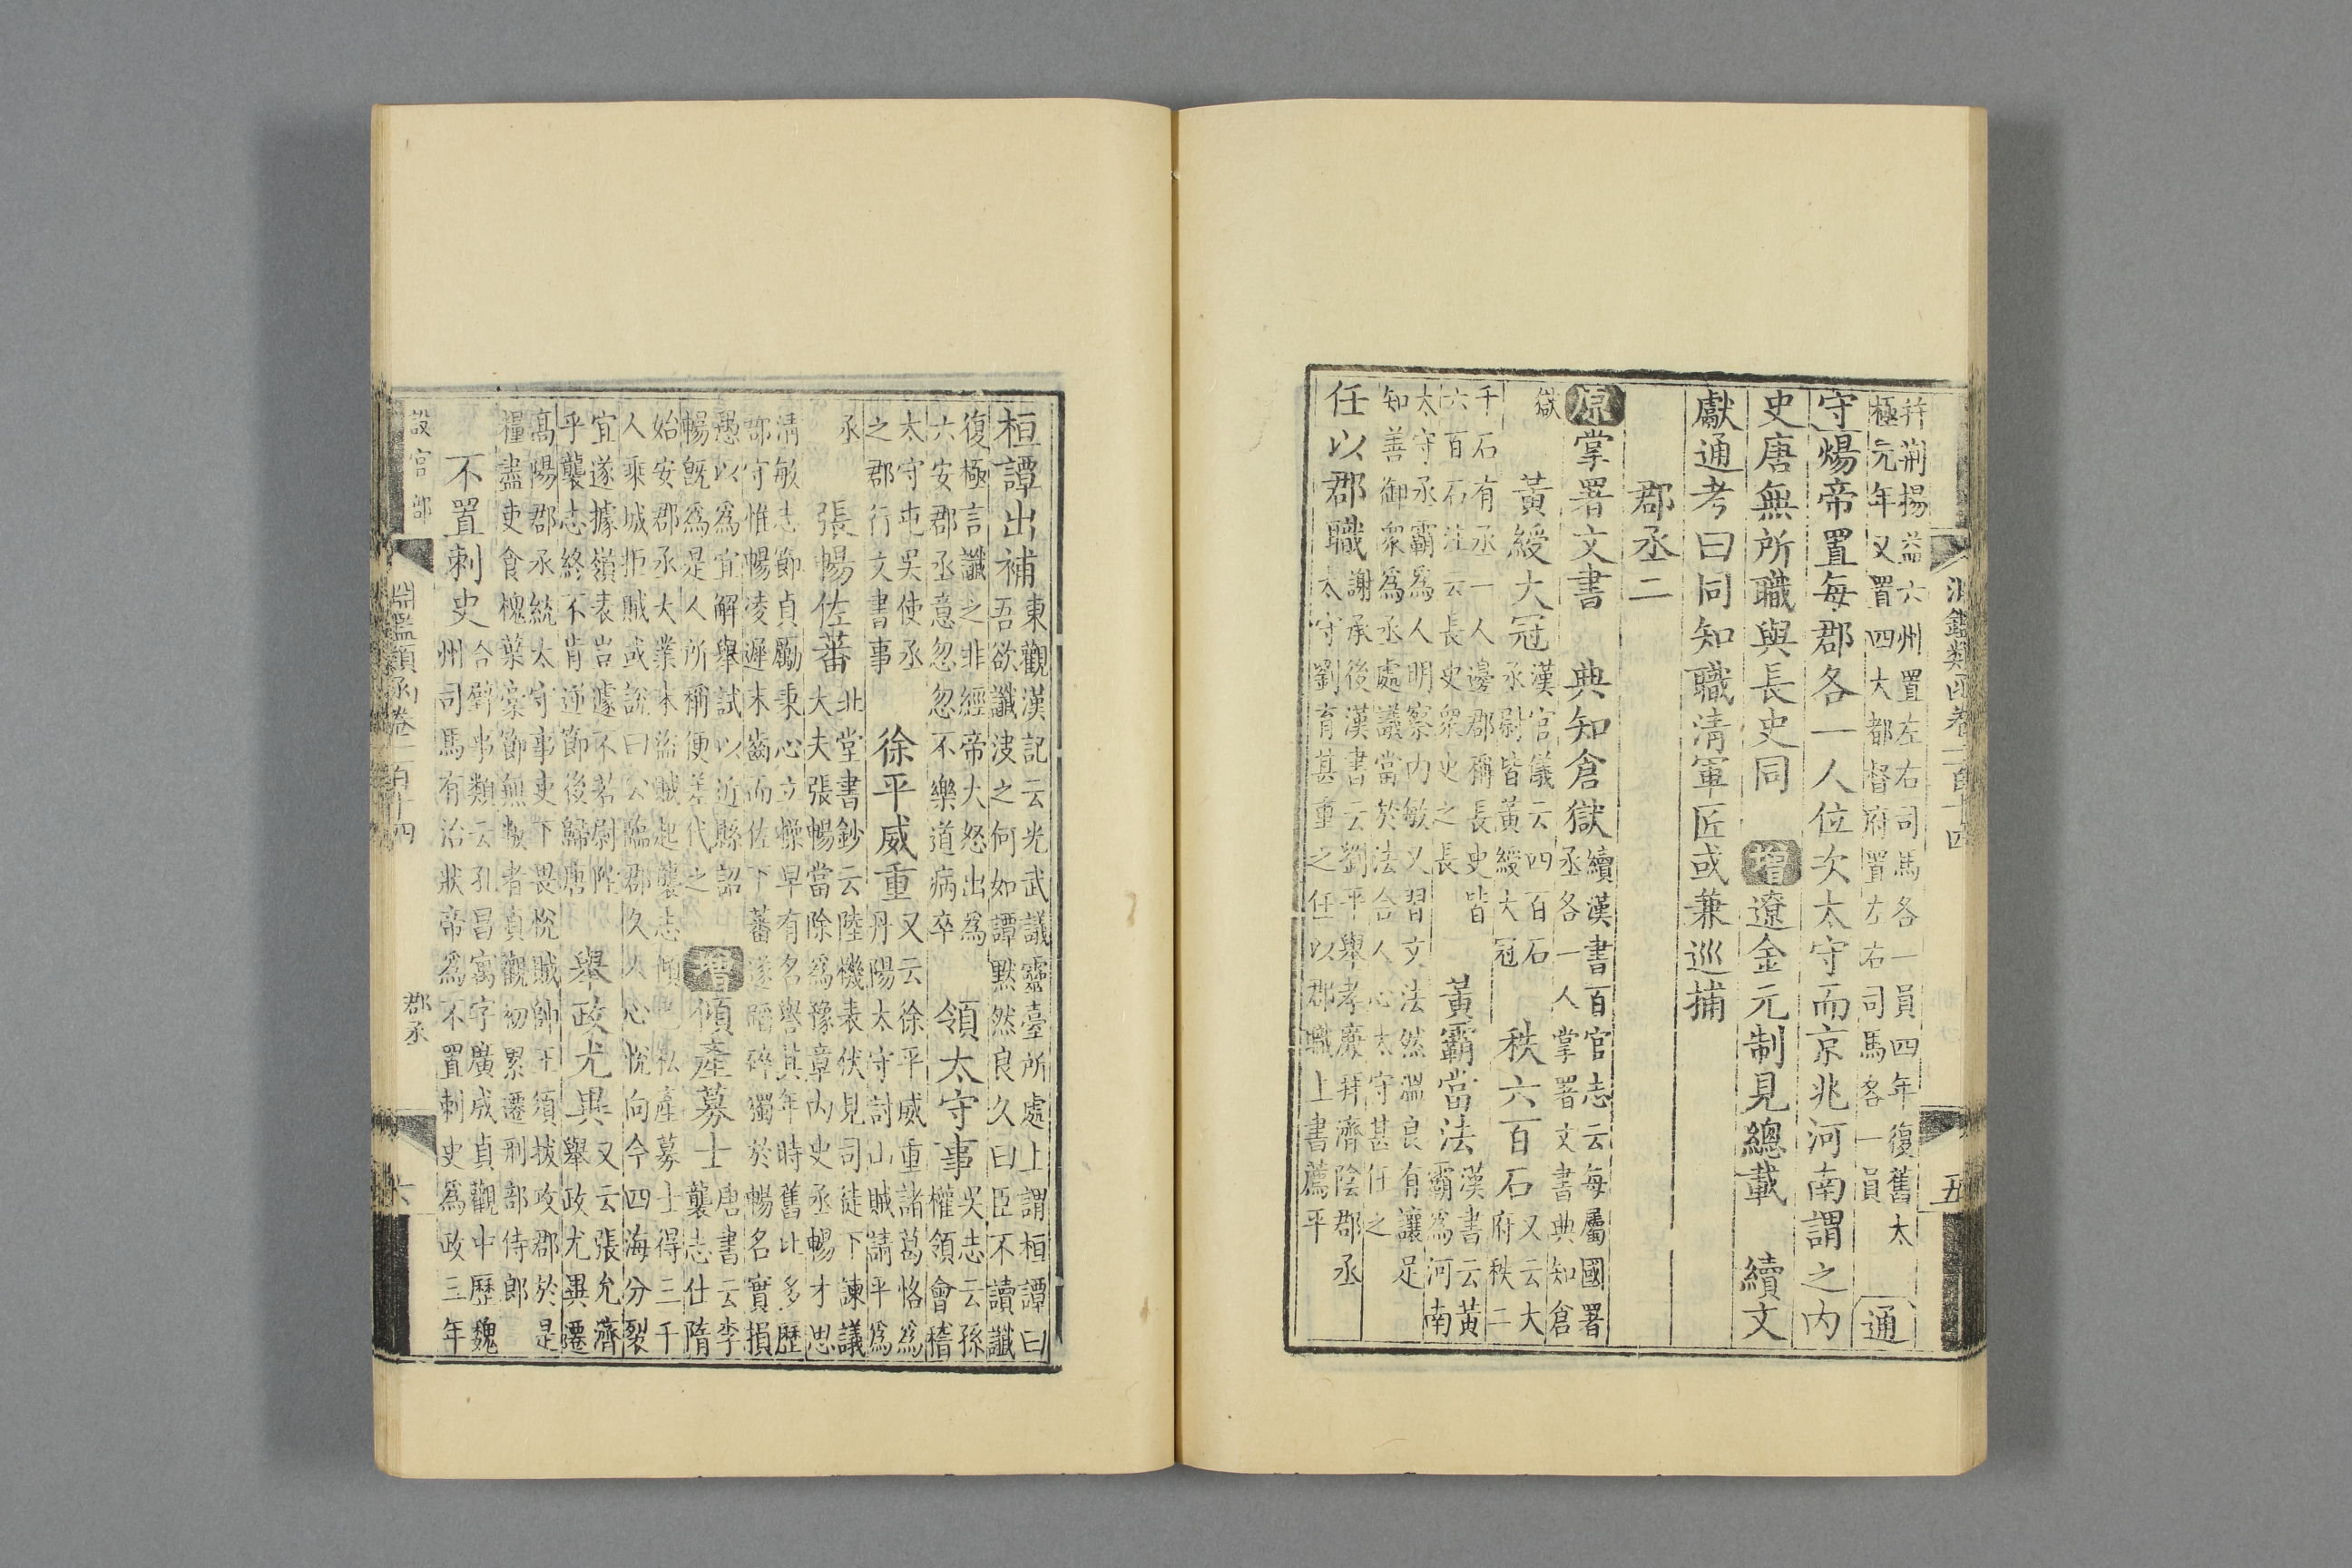 淵鑑類函卷一百十四
五
幷荊揚益六州置左右司馬各一員四年復舊太
極元年又置四大都督府置左右司馬各一員
通
守煬帝置每郡各一人位次太守而京兆河南謂之內
史唐無所職與長史同 增遼金元制見總載 續文
獻通考曰同知職清軍匠或兼巡捕
郡丞二
原掌署文書 典知倉獄
續漢書百官志云每屬國署
丞各一人掌署文書典知倉
獄
黃綬大冠
漢官儀云四百石
丞尉皆黃綬大冠
秩六百石
又云大
府秩二
千石有丞一人邊郡稱長史皆
六百石注云長史衆史之長
黃霸當法
漢書云黃
霸為河南
太守丞霸為人明察內敏又習文法然溫良有讓足
知善御衆為丞處議當於法合人心太守甚任之
任以郡職
謝承後漢書云劉平舉孝廉拜濟陰郡丞
太守劉育甚重之任以郡職上書薦平
桓譚出補
東觀漢記云光武議靈臺所處上謂桓譚曰
吾欲讖決之何如譚默然良久曰臣不讀讖
復極言讖之非經帝大怒出為
六安郡丞意忽忽不樂道病卒
領太守事
吳志云孫
權領會稽
太守屯吳使丞
之郡行文書事
徐平威重
又云徐平威重諸葛恪為
丹陽太守討山賊請平為
丞
張暢佐蕃
北堂書鈔云陸機表伏見司徒下諫議
大夫張暢當除為豫章內史丞暢才思
清敏志節貞厲秉心立操早有名譽其年時舊比多歷
郡守惟暢凌遲末齒而佐下蕃遂蹈碎獨於暢名實損
愚以為宜解舉試以近縣詔
暢旣為是人所稱便差代之
增傾產募士
唐書云李
襲志仕隋
始安郡丞大業末盜賊起襲志傾私產募士得三千
人乘城拒賊或說曰公臨郡久人心悅向今四海分裂
宜遂據嶺表豈遽不若尉陀
乎襲志終不肯逆節後歸唐
舉政尤異
又云張允濟
舉政尤異遷
高陽郡丞統太守事吏下畏悅賊帥王須拔攻郡於是
糧盡吏食槐葉藁節無叛者貞觀初累遷刑部侍郎
不置刺史
合璧事類云孔昌寓字廣成貞觀中歷魏
州司馬有治狀帝為不置刺史為政三年
設官部
淵鑑類函卷一百十四
郡丞
六